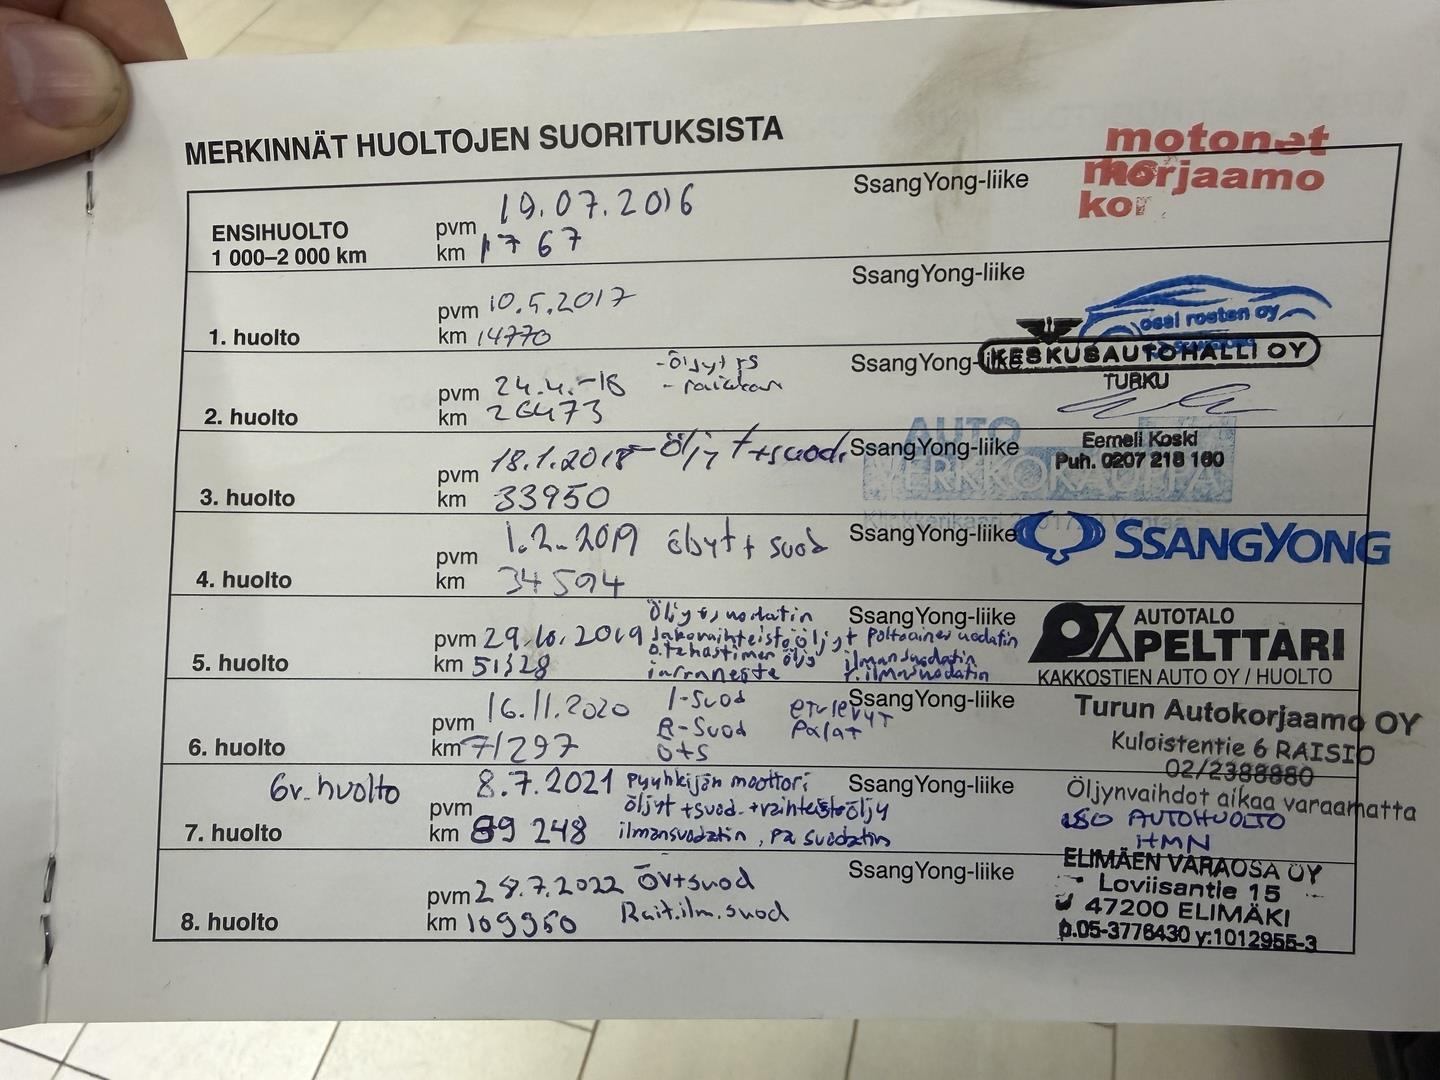 MERKINNÄT HUOLTOJEN SUORITUKSISTA
motonet
morjaamo
kor
ENSIHUOLTO
1 000–2 000 km
pvm 19.07.2016
km 1767
SsangYong-liike
1. huolto
pvm 10.5.2017
km 14770
SsangYong-liike
ossi rosten oy
2. huolto
pvm 24.4.-18
km 26473
-öljyt
-
SsangYong-liike
KESKUSAUTOHALLI OY
TURKU
Eemeli Koski
Puh. 0207 218 160
3. huolto
pvm 18.1.2018 öljyt+suod.
km 33950
SsangYong-liike
AUTO
VERKKOKAUPPA
4. huolto
pvm 1.2.2019 öljyt + suod
km 34594
SsangYong-liike
SSANGYONG
5. huolto
pvm 29.10.2019
km 51328
Öljy+suodatin
Jakovaihteistoöljyt Polttoainesuodatin
öljy ilmansuodatin
jarruneste r.ilmansuodatin
SsangYong-liike
AUTOTALO
PELTTARI
KAKKOSTIEN AUTO OY / HUOLTO
6. huolto
pvm 16.11.2020
km 71297
I-suod
R-suod
O+S
etulevyt
Palat
SsangYong-liike
Turun Autokorjaamo OY
Kuloistentie 6 RAISIO
02/2388880
Öljynvaihdot aikaa varaamatta
6v. huolto
7. huolto
pvm 8.7.2021
km 89 248
Pyyhkijän moottori
öljyt +suod. +vaihteistoöljy
ilmansuodatin, PA suodatin
SsangYong-liike
ISO AUTOHUOLTO
HMN
8. huolto
pvm 28.7.2022
km 109950
ÖV+suod
Rait.ilm.suod
SsangYong-liike
ELIMÄEN VARAOSA OY
Loviisantie 15
47200 ELIMÄKI
p.05-3776430 y:1012955-3